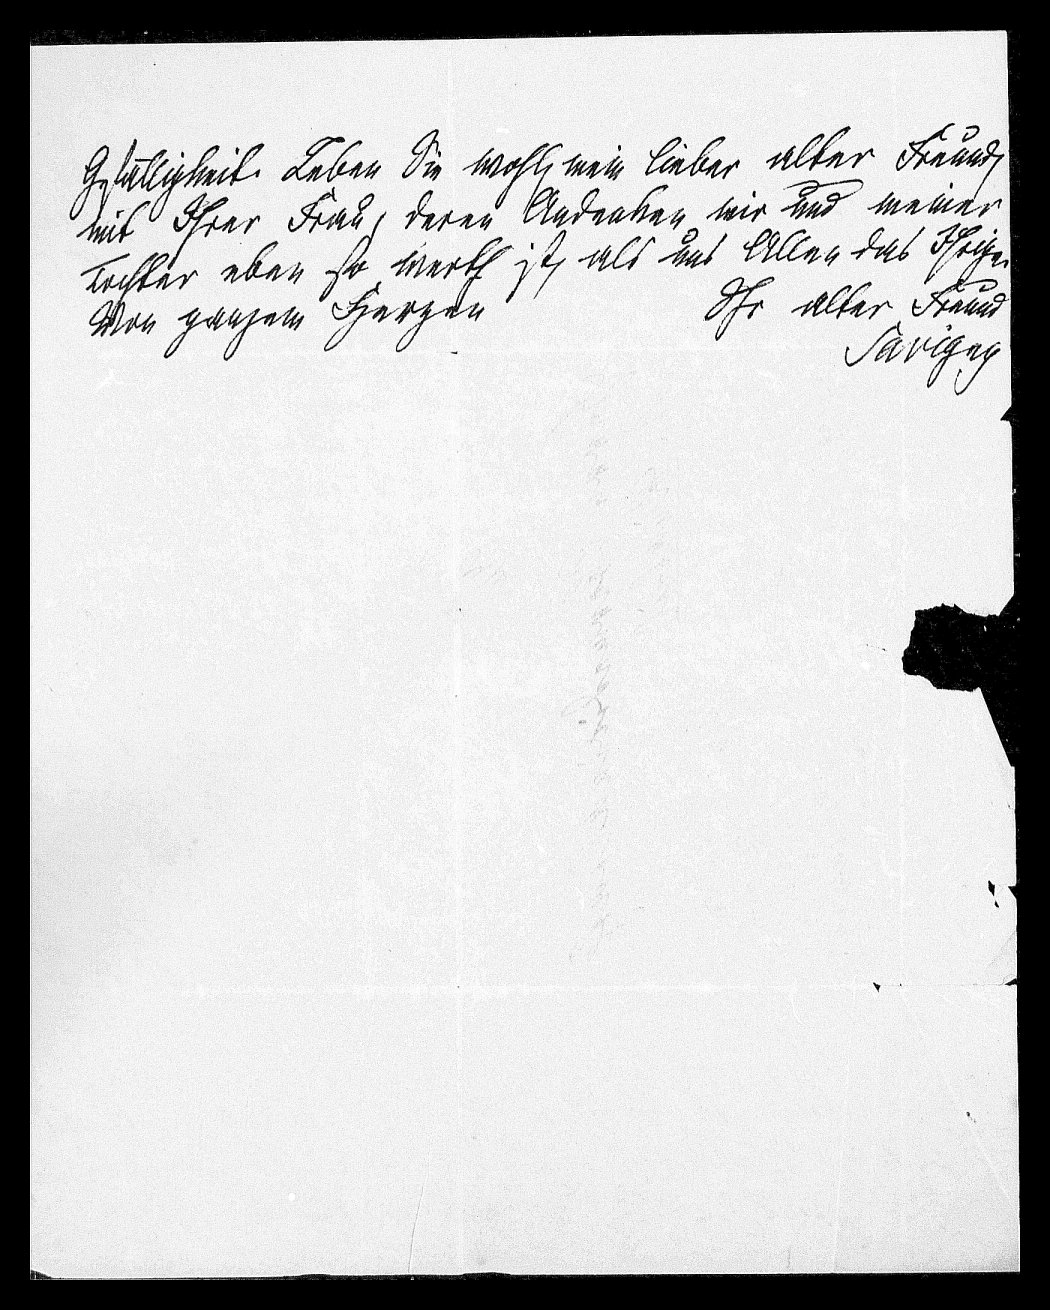 Gefälligkeit. Leben Sie wohl, mein lieber alter Freund,
mit Ihrer Frau, deren Andenken mir und meiner
Tochter eben so werth ist, als uns Allen das Ihrige.
Von ganzem Herzen Ihr alter Freund
Savigny